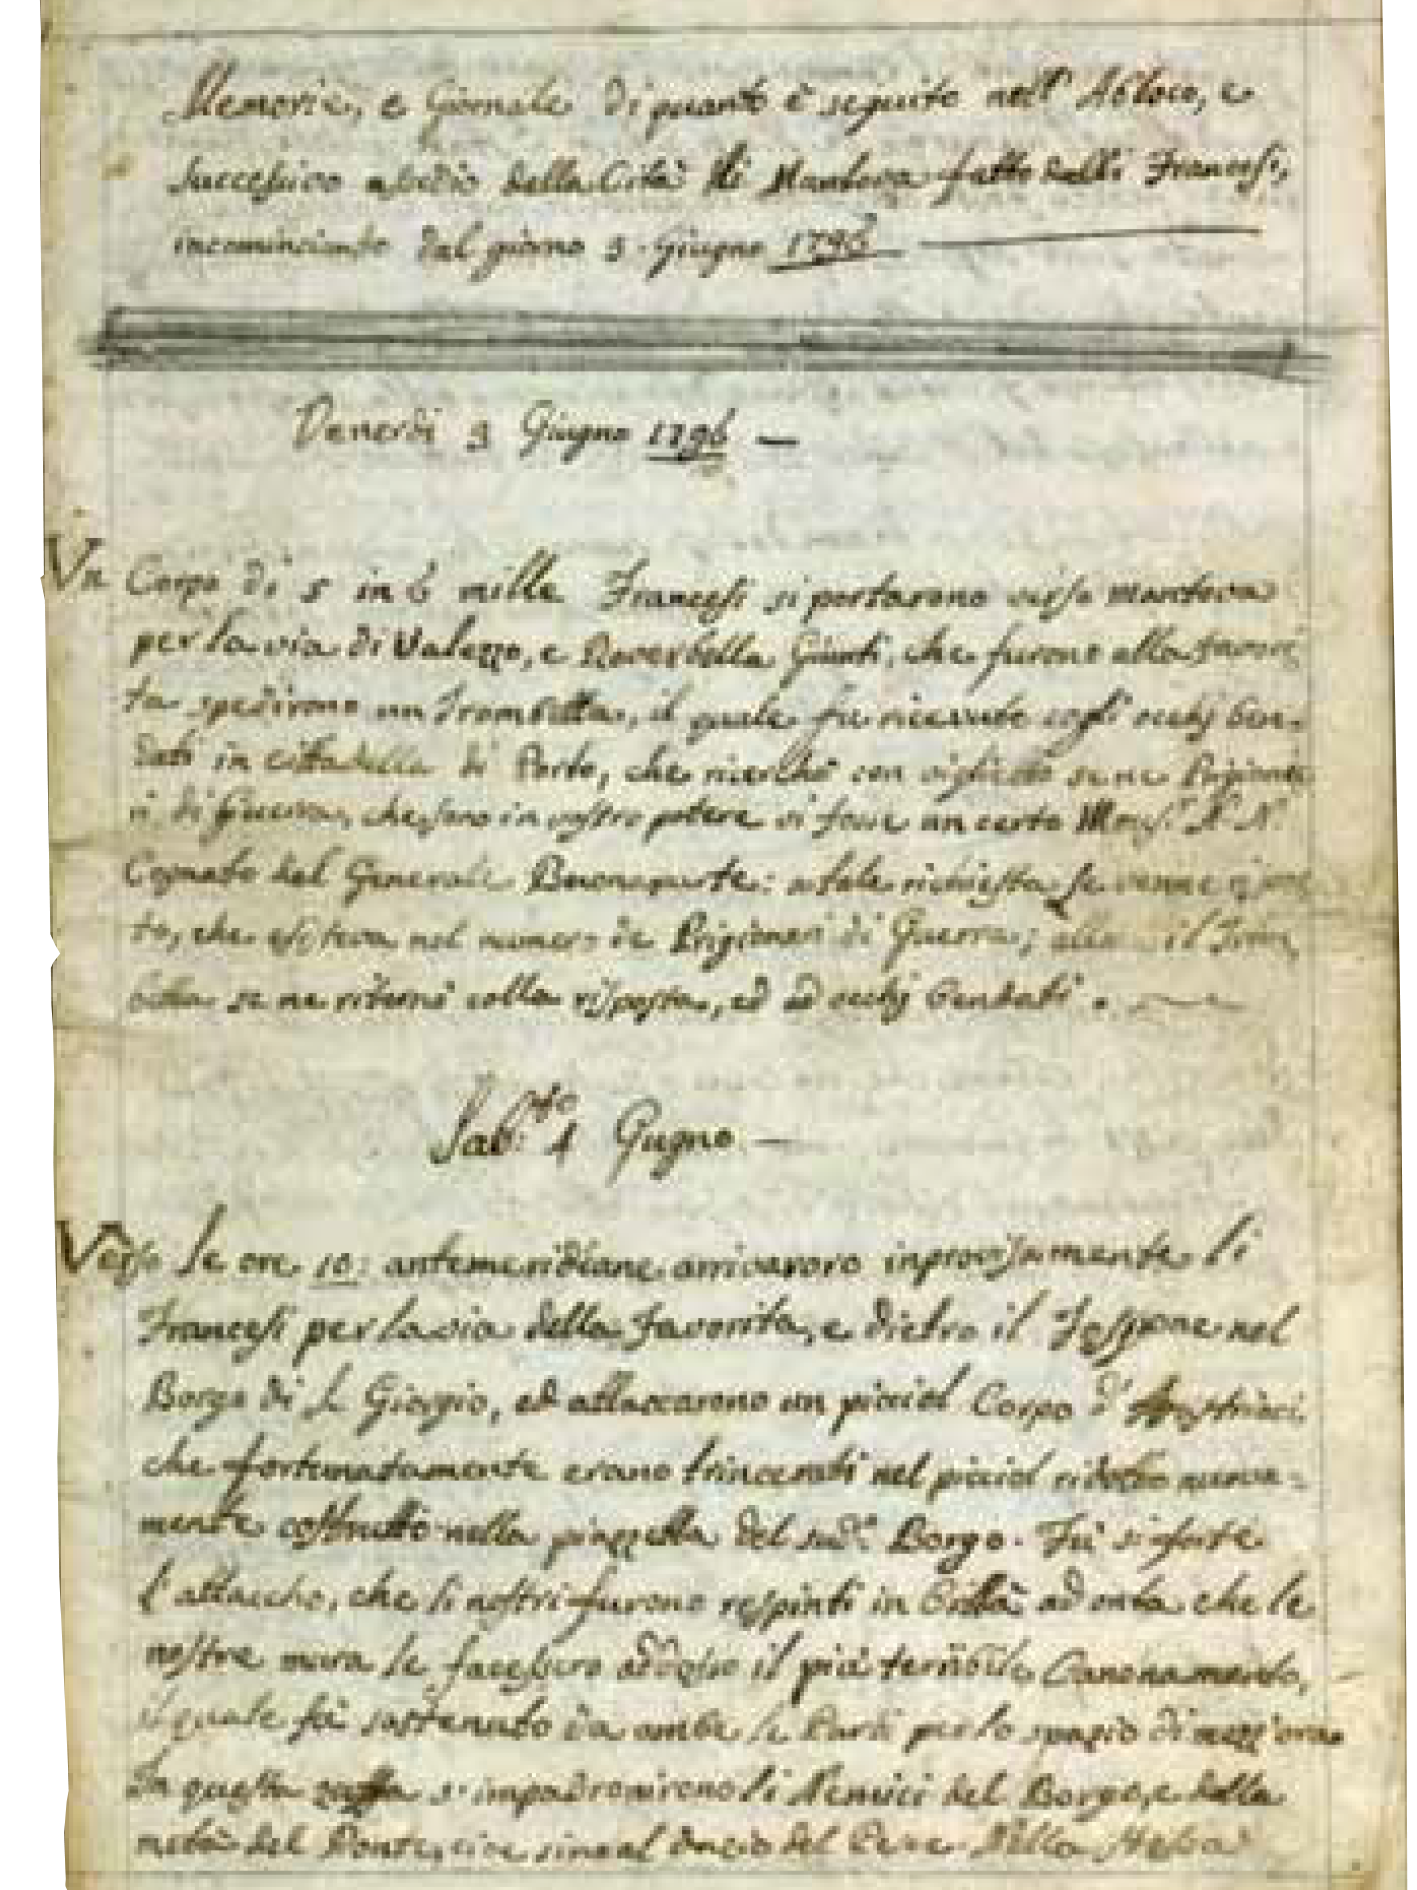 Memorie, e Giornale di quanto è seguito nell' Abloco, e
successivo assedio della Cità di Mantova fatto dalli Francesi,
incominciando dal giorno 3. Giugno 1796
Venerdi 3 Giugno 1796 —
Un Corpo di 5 in 6 mille Francesi si portarono verso Mantova
per la via di Valezzo, e Roverbella Giunti, che furono alla Favori
ta spedirono un Trombetta, il quale fu ricevuto cogli occhj ben-
dati in cittadella di Porto, che ricerchò con viglietto se ne Prigionie
ri di Guerra, che sono in vostro potere vi fosse un certo Mons.r N. N.
Cognato del Generale Buonaparte: a tale richiesta le venne rispos
to, che esisteva nel numero de Prigionieri di Guerra; allora il Trom
betta se ne ritornò colla risposta, ed ad occhj bendati.
Sab.to 4 Giugno —
Verso le ore 10: antemeridiane arrivarono inprovisamente li
Francesi per la via della Favorita, e dietro il Fossone nel
Borgo di S. Giorgio, ed attaccarono un picciol Corpo d' Austriaci
che fortunatamente erano trincerati nel picciol ridotto nuova-
mente costrutto nella piazzetta del sud.o Borgo. Fù si forte
l'attaccho, che li nostri furono respinti in Città ad onta che le
nostre mura le facessero addosso il più terribile Canonamento,
il quale fù sostenuto da ambe le Parti per lo spazio di mezz'ora
In questa zuffa s'impadronirono li Nemici del Borgo, e della
metà del Ponte, cioe sino al del Nella